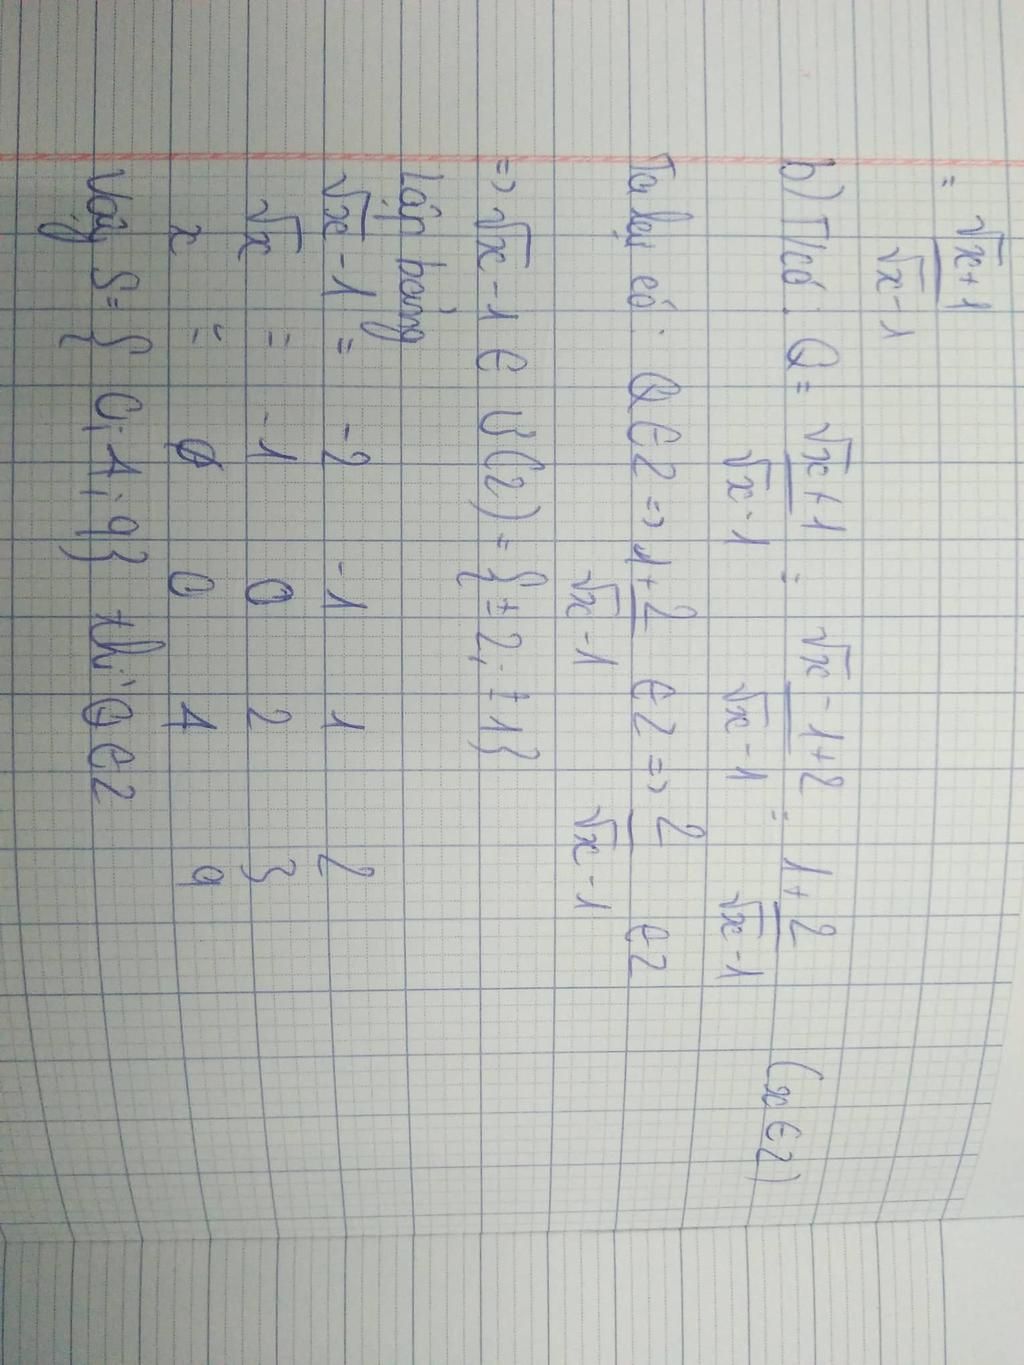 = √x+1 / √x-1
b) T/có: Q = √x+1 / √x-1 = √x-1+2 / √x-1 = 1+ 2 / √x-1 (x ∈ Z)
Ta lại có: Q ∈ Z => 1+ 2 / √x-1 ∈ Z => 2 / √x-1 ∈ Z
=> √x-1 ∈ Ư(2) = { ±2; ±1}
Lập bảng
√x-1 = -2 -1 1 2
√x = -1 0 2 3
x = ∅ 0 4 9
Vậy S= { 0; 4; 9} thì Q ∈ Z